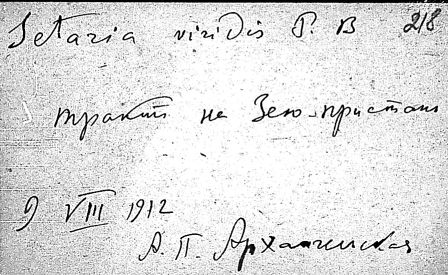 Setaria viridis P. B 218
тракт на Зею-пристань
9 VIII 1912
А. П. Архангельская